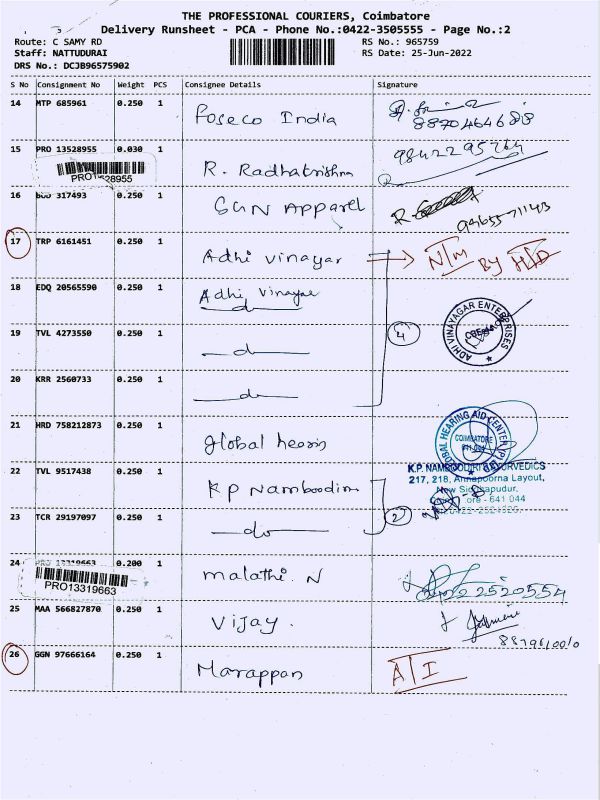 THE PROFESSIONAL COURIERS, Coimbatore
Delivery Runsheet - PCA - Phone No.:0422-3505555 - Page No.:2
Route: C SAMY RD RS No.: 965759
Staff: NATTUDURAI RS Date: 25-Jun-2022
DRS No.: DCJB96575902
S No Consignment No Weight PCS Consignee Details Signature
14 MTP 685961 0.250 1 Foseco India
8870464688
15 PRO 13528955 0.030 1 R. Radhakrishnan 9842295764
16 317493 0.250 1 SGN Apparel
17 TRP 6161451 0.250 1 Adhi vinayar N/M BY H/D
18 EDQ 20565590 0.250 1 Adhi vinayar
ADHI VINAYAGAR ENTERPRISES
19 TVL 4273550 0.250 1 do 4
20 KRR 2560733 0.250 1 do
21 HRD 758212873 0.250 1 global hearis
HEARING AID CENTER
COIMBATORE
K.P. NAMBOODIRI'S AYURVEDICS
217, 218, Annapoorna Layout,
22 TVL 9517438 0.250 1 K P Namboodiri
ore - 641 044
23 TCR 29197097 0.250 1 do 2
24 PRO 13319663 0.200 1 malathi. N 2520554
PRO13319663
25 MAA 566827870 0.250 1 Vijay.
26 GGN 97666164 0.250 1 Marappan A/I